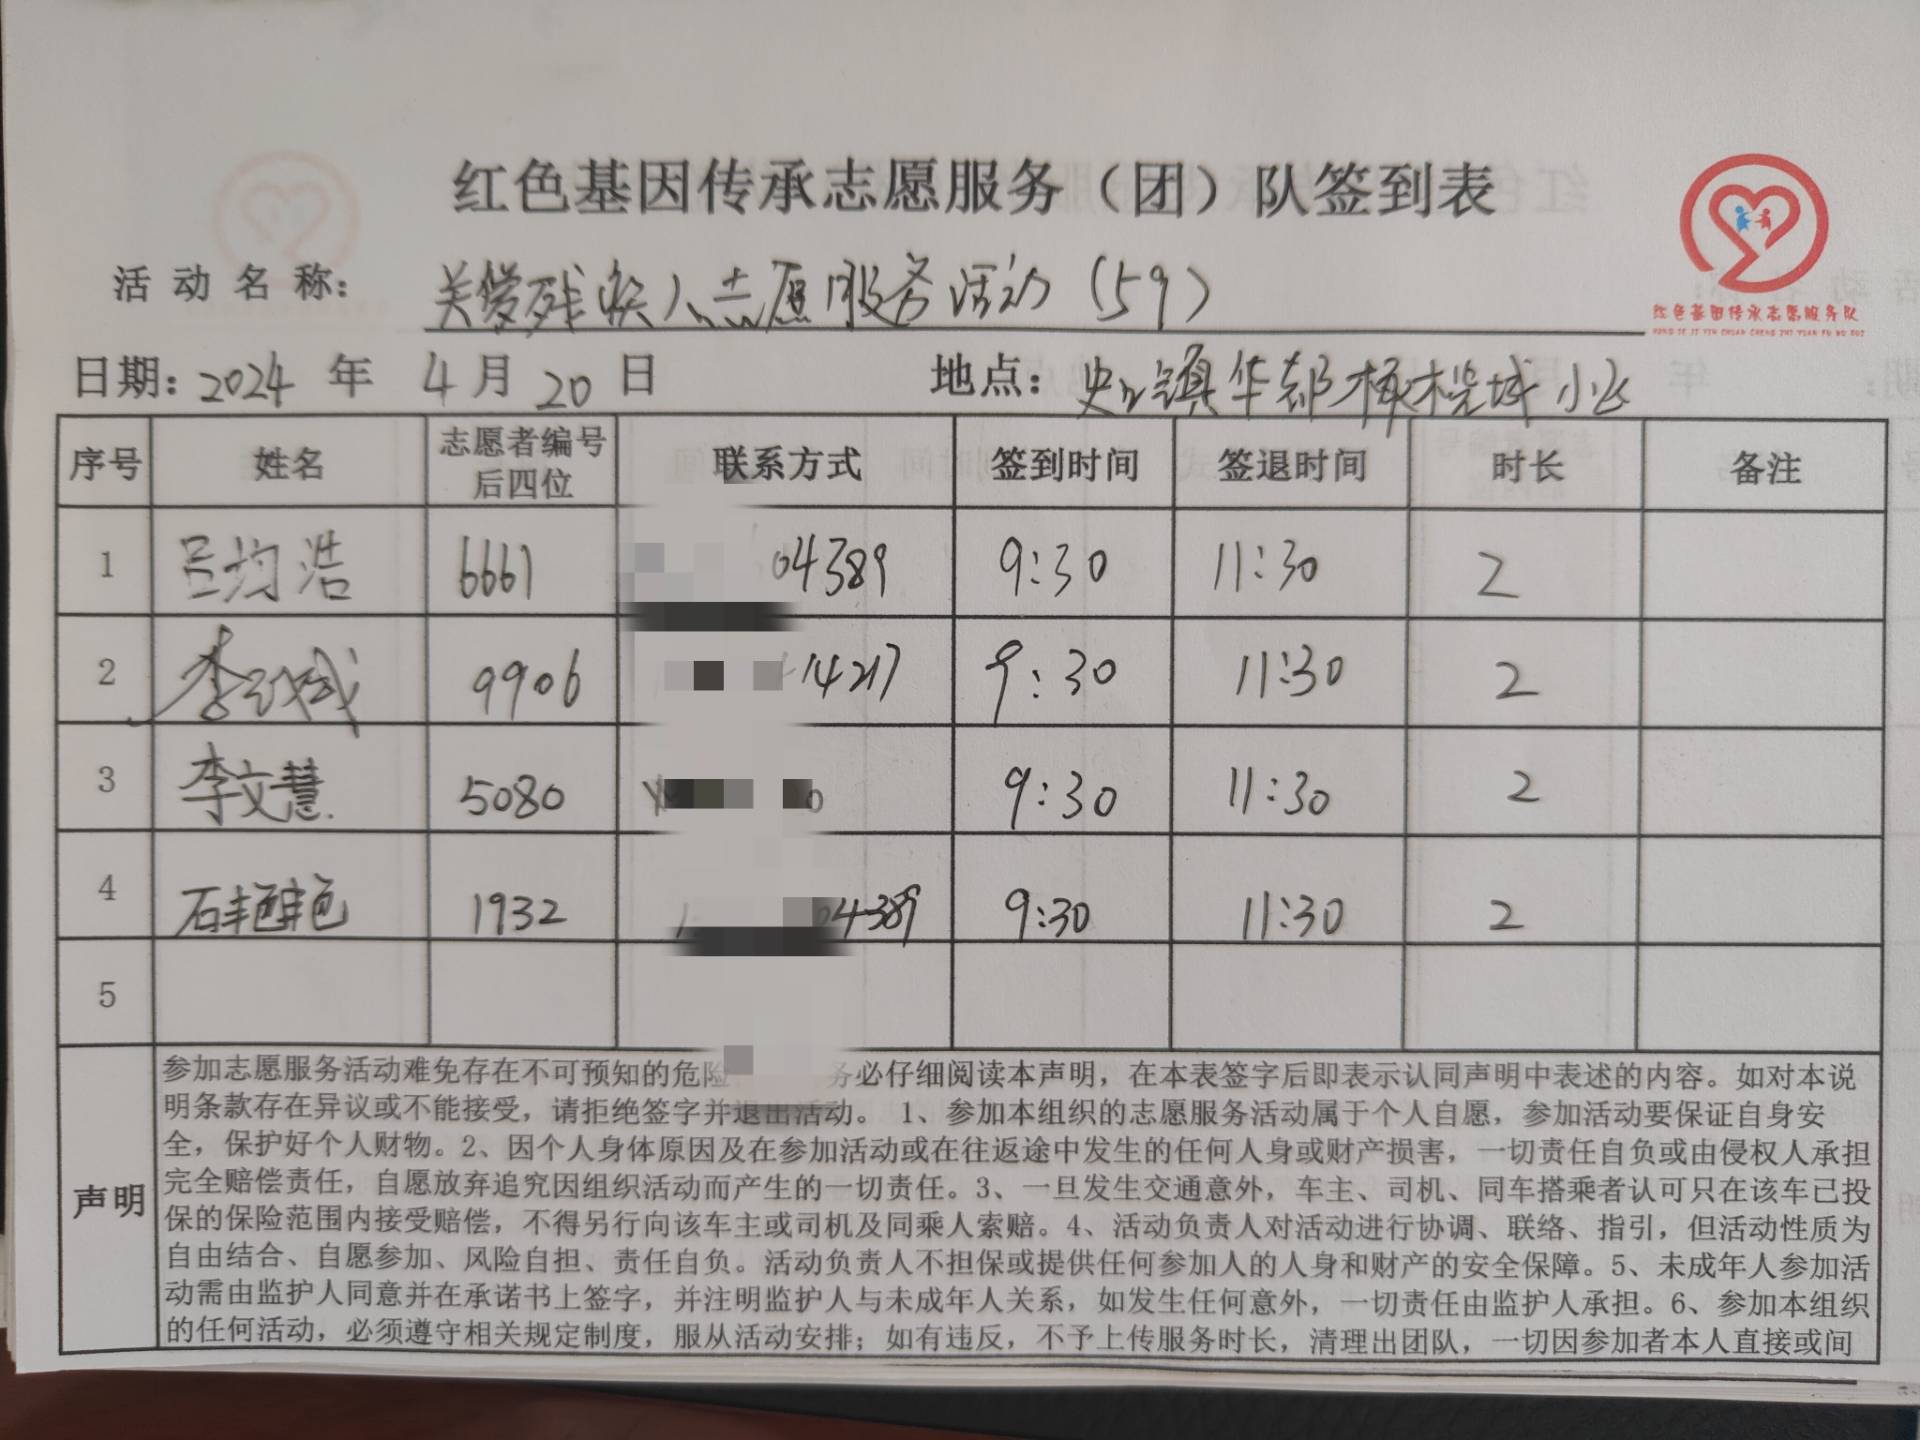 红色基因传承志愿服务（团）队签到表
红色基因传承志愿服务队
HONG SE JI YIN CHUAN CHENG ZHI YUAN FU WU DUI
活动名称：关爱残疾人志愿服务活动（59）
日期：2024年4月20日 地点：镇华都橄榄城小区
序号 姓名 志愿者编号后四位 联系方式 签到时间 签退时间 时长 备注
1 吕均浩 6661 04389 9:30 11:30 2
2 李 9906 14217 9:30 11:30 2
3 李文慧 5080 0 9:30 11:30 2
4 石艳艳 1932 04389 9:30 11:30 2
5
声明
参加志愿服务活动难免存在不可预知的危险 务必仔细阅读本声明，在本表签字后即表示认同声明中表述的内容。如对本说
明条款存在异议或不能接受，请拒绝签字并退出活动。 1、参加本组织的志愿服务活动属于个人自愿，参加活动要保证自身安
全，保护好个人财物。2、因个人身体原因及在参加活动或在往返途中发生的任何人身或财产损害，一切责任自负或由侵权人承担
完全赔偿责任，自愿放弃追究因组织活动而产生的一切责任。3、一旦发生交通意外，车主、司机、同车搭乘者认可只在该车已投
保的保险范围内接受赔偿，不得另行向该车主或司机及同乘人索赔。4、活动负责人对活动进行协调、联络、指引，但活动性质为
自由结合、自愿参加、风险自担、责任自负。活动负责人不担保或提供任何参加人的人身和财产的安全保障。5、未成年人参加活
动需由监护人同意并在承诺书上签字，并注明监护人与未成年人关系，如发生任何意外，一切责任由监护人承担。6、参加本组织
的任何活动，必须遵守相关规定制度，服从活动安排；如有违反，不予上传服务时长，清理出团队，一切因参加者本人直接或间